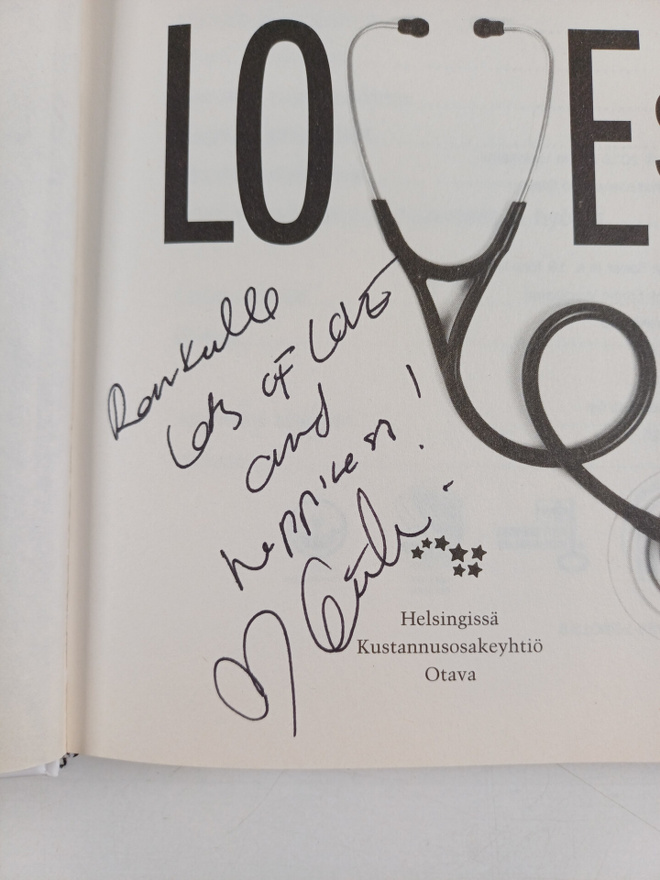 LOVES
Rankalle
Lots of Love
and
happiness!
Helsingissä
Kustannusosakeyhtiö
Otava